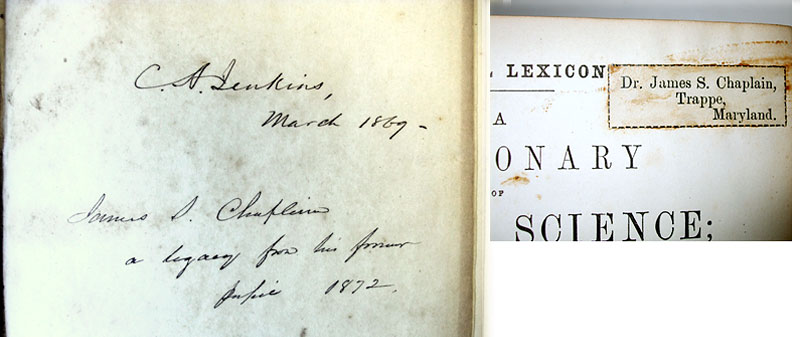 C. A. Jenkins,
March 1869 -
James S. Chaplain
a legacy from his former
pupil 1872.
L LEXICON
Dr. James S. Chaplain,
Trappe,
Maryland.
A
ONARY
OF
SCIENCE;